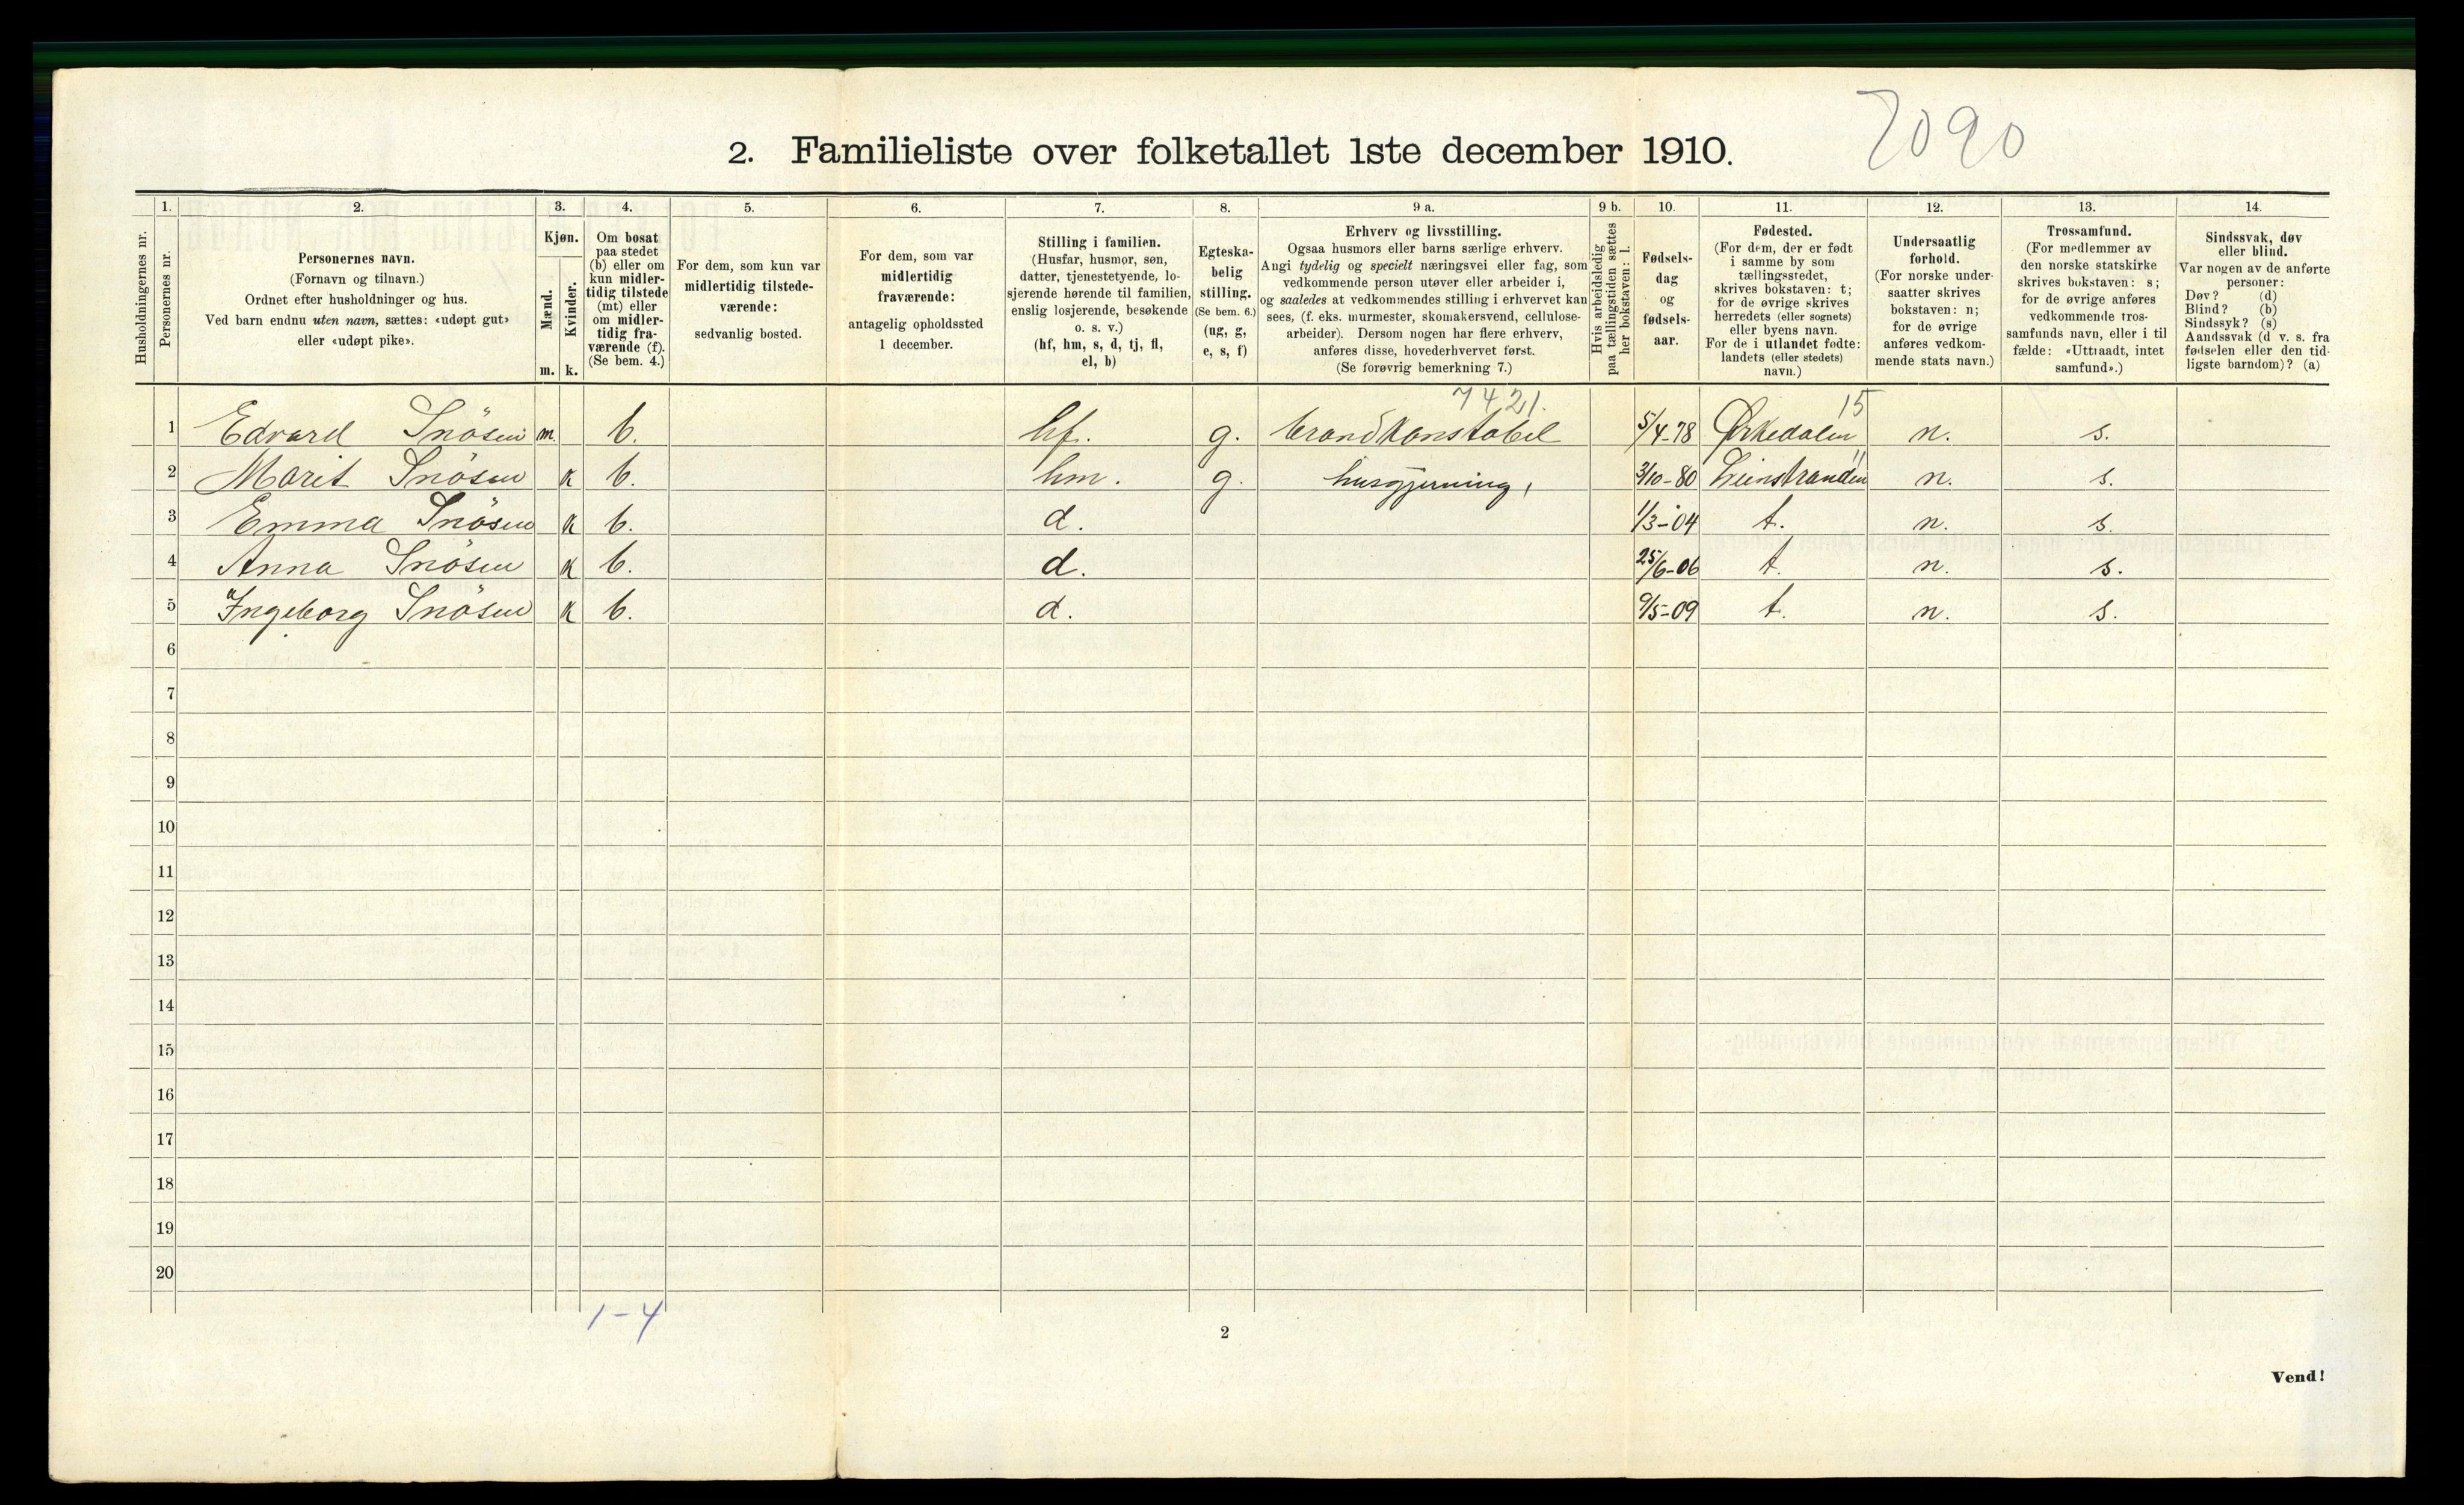 7090
2. Familieliste over folketallet 1ste december 1910.
Husholdningernes nr.
1. Personernes nr.
2. Personernes navn.
(Fornavn og tilnavn.)
Ordnet efter husholdninger og hus.
Ved barn endnu uten navn, sættes: «udøpt gut»
eller «udøpt pike».
3. Kjøn.
Mænd. Kvinder.
m. k.
4. Om bosat
paa stedet
(b) eller om
kun midler-
tidig tilstede
(mt) eller
om midler-
tidig fra-
værende (f).
(Se bem. 4.)
5. For dem, som kun var
midlertidig tilstede-
værende:
sedvanlig bosted.
6. For dem, som var
midlertidig
fraværende:
antagelig opholdssted
1 december.
7. Stilling i familien.
(Husfar, husmor, søn,
datter, tjenestetyende, lo-
sjerende hørende til familien,
enslig losjerende, besøkende
o. s. v.)
(hf, hm, s, d, tj, fl,
el, b)
8. Egteska-
belig
stilling.
(Se bem. 6.)
(ug, g,
e, s, f)
9 a. Erhverv og livsstilling.
Ogsaa husmors eller barns særlige erhverv.
Angi tydelig og specielt næringsvei eller fag, som
vedkommende person utøver eller arbeider i,
og saaledes at vedkommendes stilling i erhvervet kan
sees, (f. eks. murmester, skomakersvend, cellulose-
arbeider). Dersom nogen har flere erhverv,
anføres disse, hovederhvervet først.
(Se forøvrig bemerkning 7.)
9 b. Hvis arbeidsledig
paa tællingstiden sættes
her bokstaven: l.
10. Fødsels-
dag
og
fødsels-
aar.
11. Fødested.
(For dem, der er født
i samme by som
tællingsstedet,
skrives bokstaven: t;
for de øvrige skrives
herredets (eller sognets)
eller byens navn.
For de i utlandet fødte:
landets (eller stedets)
navn.)
12. Undersaatlig
forhold.
(For norske under-
saatter skrives
bokstaven: n;
for de øvrige
anføres vedkom-
mende stats navn.)
13. Trossamfund.
(For medlemmer av
den norske statskirke
skrives bokstaven: s;
for de øvrige anføres
vedkommende tros-
samfunds navn, eller i til
fælde: «Uttraadt, intet
samfund».)
14. Sindssvak, døv
eller blind.
Var nogen av de anførte
personer:
Døv? (d)
Blind? (b)
Sindssyk? (s)
Aandssvak (d v. s. fra
fødselen eller den tid-
ligste barndom)? (a)
7421. 15
1 Edvard Snösen m. b. hf. g. brandkonstabel 5/4-78 Ørkedalen n. s.
2 Marit Snösen k b. hm. g. husgjerning, 3/10-80 Leinstranden n. s.
3 Emma Snösen k b. d. 1/3-04 t. n. s.
4 Anna Snösen k b. d. 25/6-06 t. n. s.
5 Ingeborg Snösen k b. d. 9/5-09 t. n. s.
6
7
8
9
10
11
12
13
14
15
16
17
18
19
20
1-4
2
Vend!